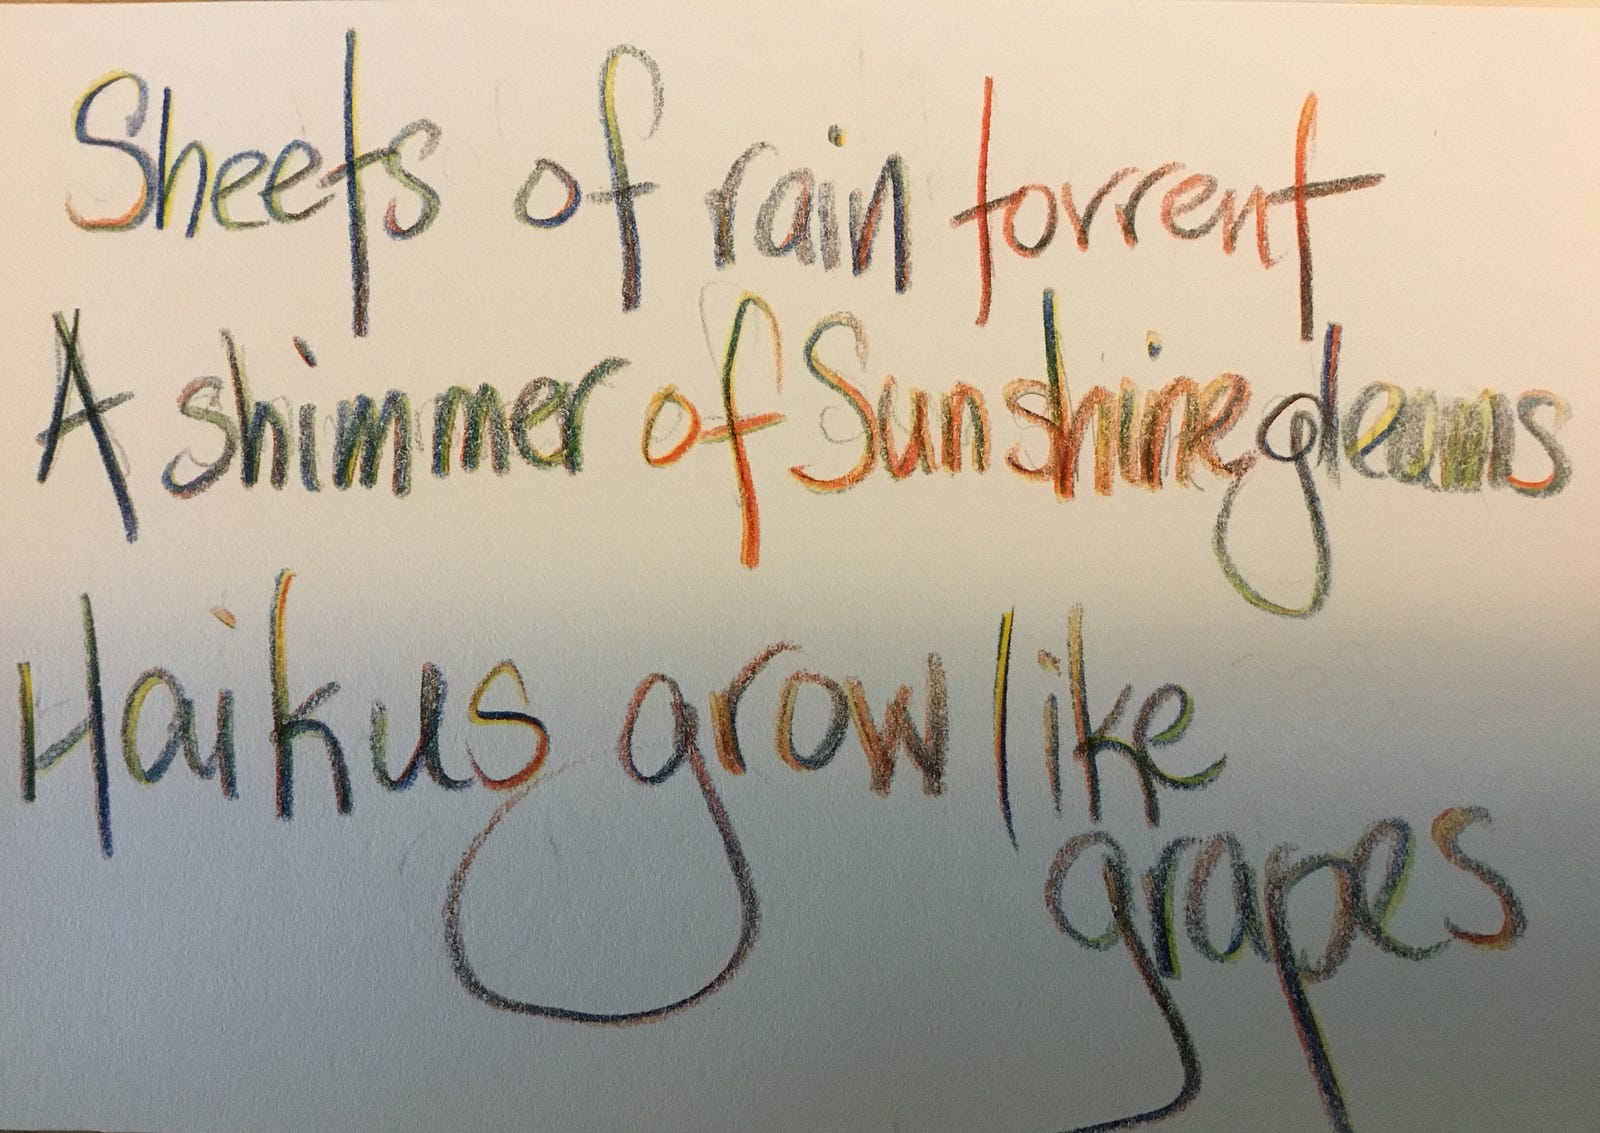 Sheets of rain torrent
A shimmer of Sunshine gleams
Haikus grow like
grapes